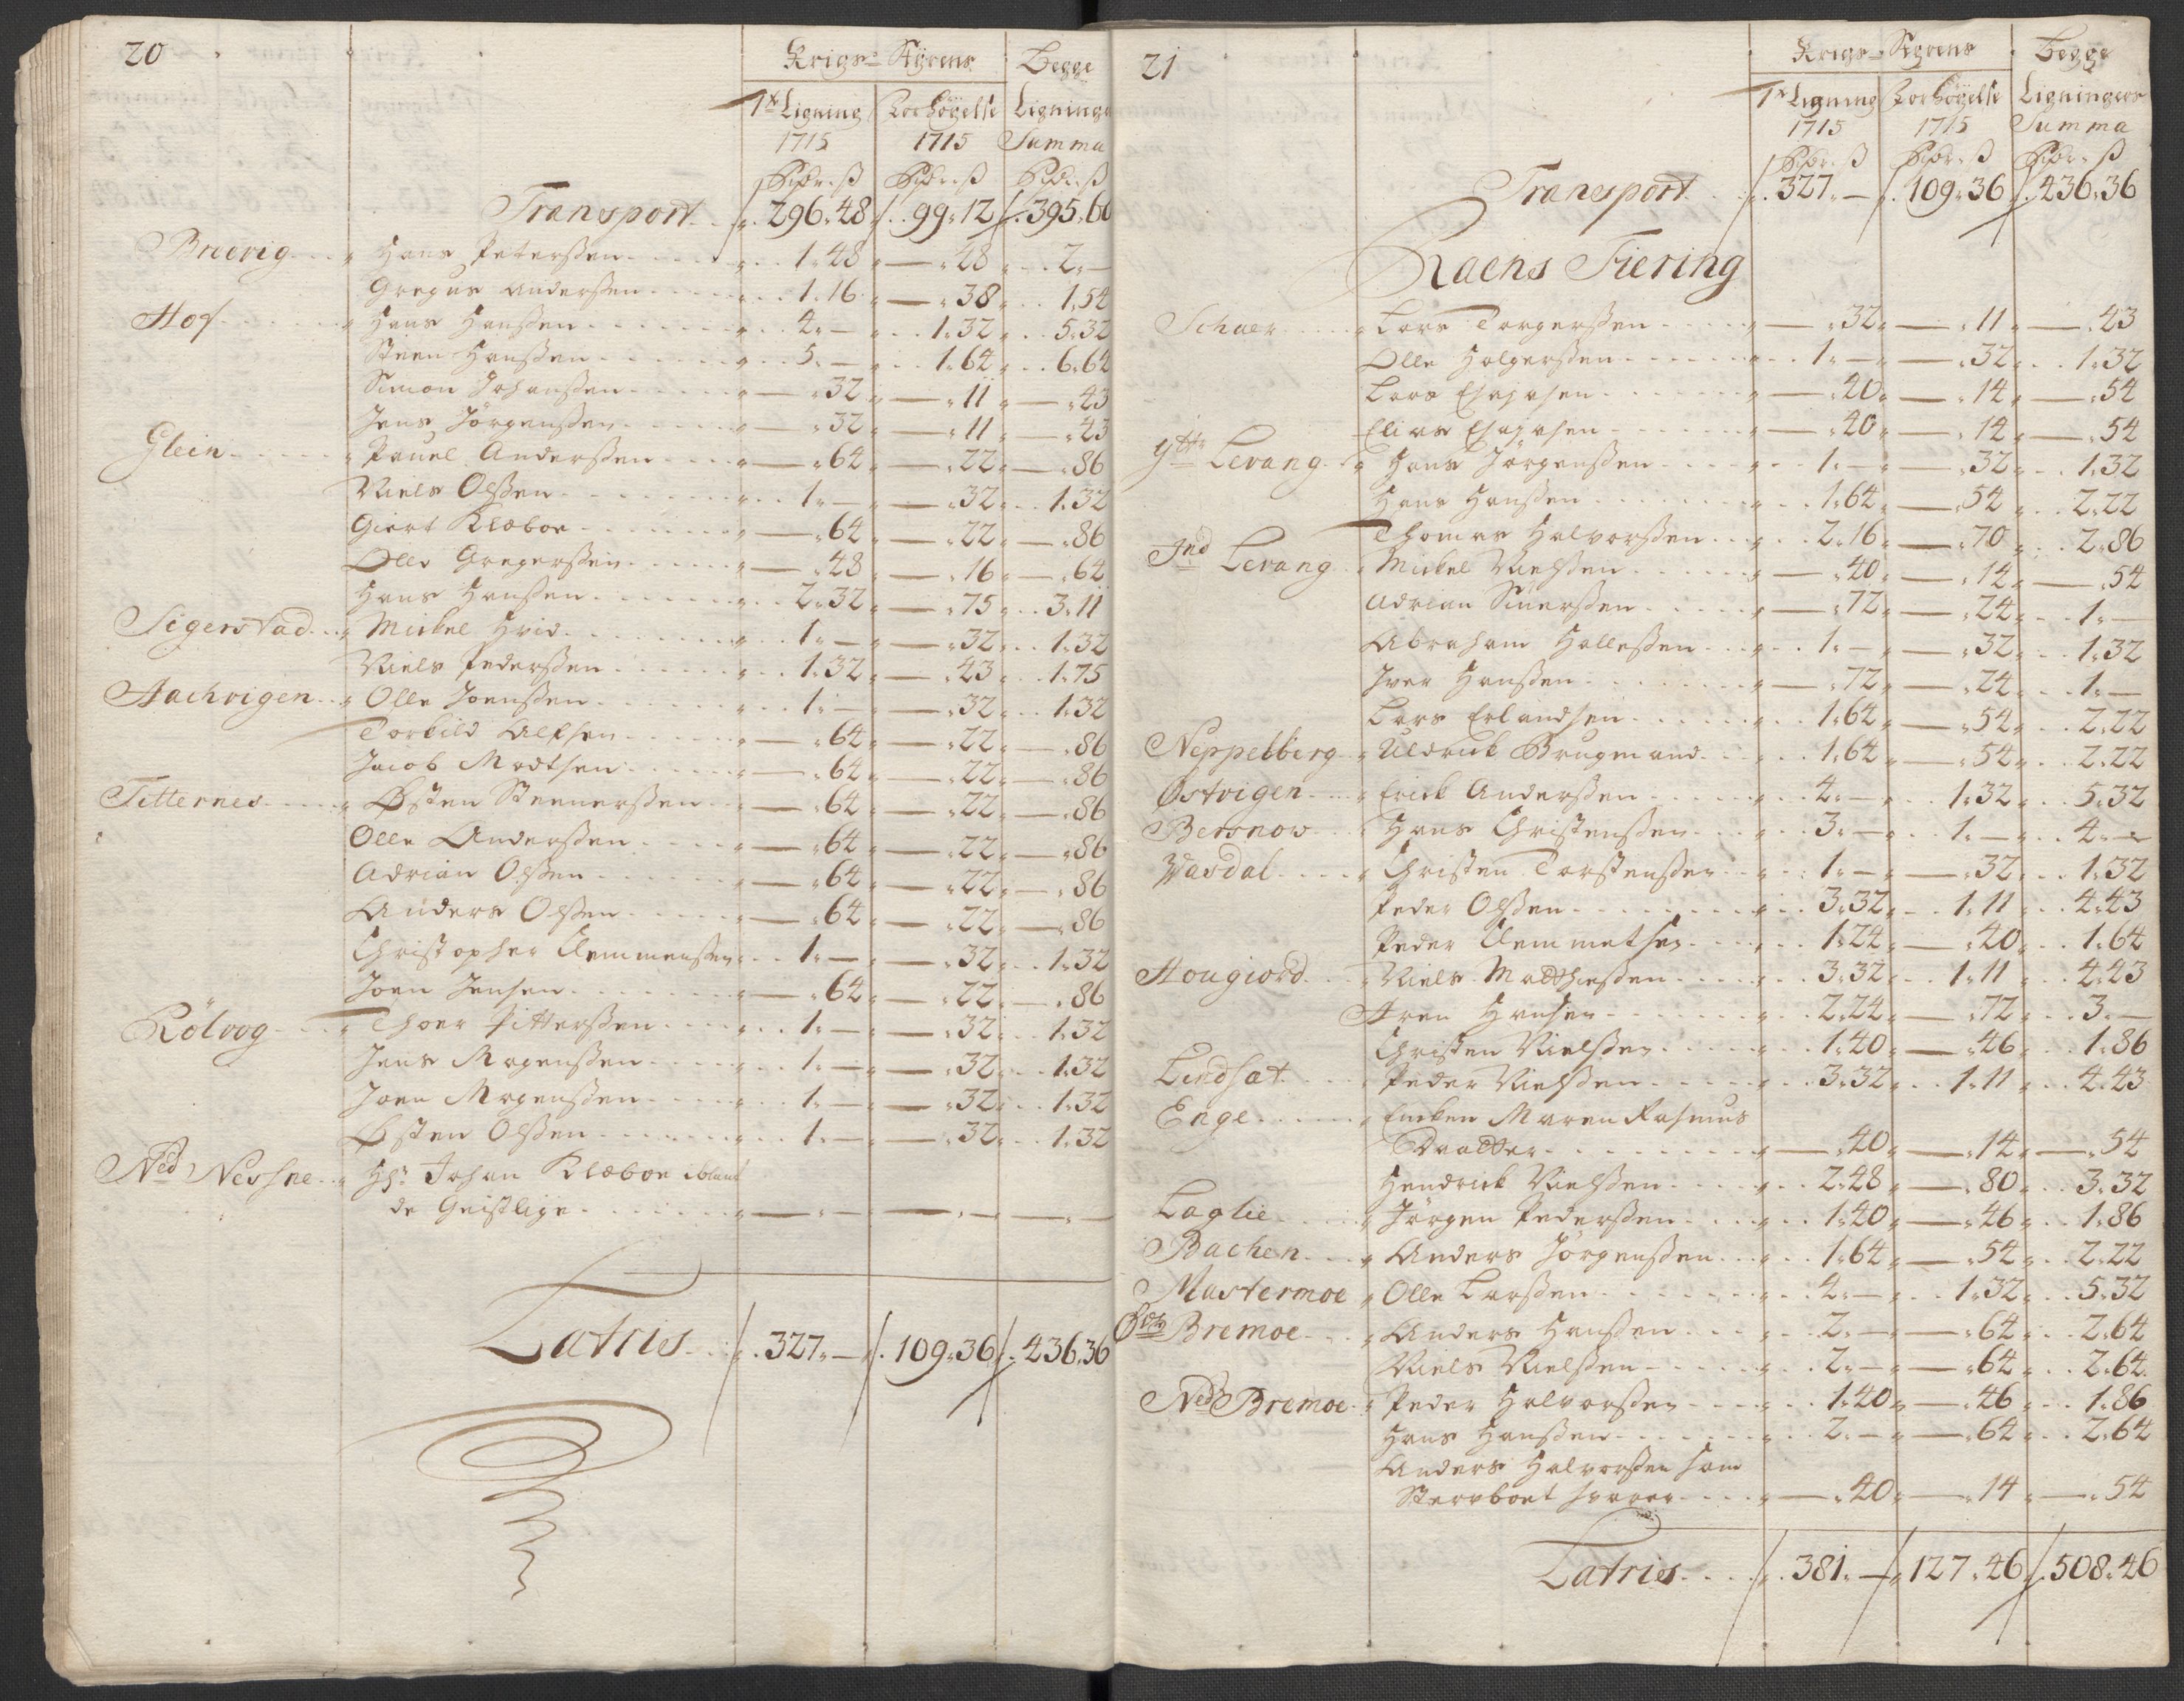 20
Krigs Styrens Begge
1te Ligning Forhöyelse Ligninger
1715 1715 Summa
Rixdr. ß Rixdr. ß Rixdr. ß
Transport 296. 48 99. 12 395. 60
Breevig Hans Peterßen 1. 48 — 48 2. —
Gregus Anderßen 1. 16 — 38 1. 54
Hof Hans Hanßen 4. — 1. 32 5. 32
Steen Hanßen 5. — 1. 64 6. 64
Simon Johanßen — 32 — 11 — 43
Jens Jörgenßen — 32 — 11 — 43
Glein Pouel Anderßen — 64 — 22 — 86
Niels Olßen 1. — — 32 1. 32
Giert Klæboe — 64 — 22 — 86
Olle Gregerßen — 48 — 16 — 64
Hans Hanßen 2. 32 — 75 3. 11
Sigerstad Mickel Hvid 1. — — 32 1. 32
Niels Pederßen 1. 32 — 43 1. 75
Aachvigen Olle Joenßen 1. — — 32 1. 32
Torkild Alfsen — 64 — 22 — 86
Jacob Madtsen — 64 — 22 — 86
Titternes Østen Steenerßen — 64 — 22 — 86
Olle Anderßen — 64 — 22 — 86
Adrian Olßen — 64 — 22 — 86
Anders Olßen — 64 — 22 — 86
Christopher Clemmenßen 1. — — 32 1. 32
Joen Jensen — 64 — 22 — 86
Rölvog Thoer Pitterßen 1. — — 32 1. 32
Jens Mogenßen 1. — — 32 1. 32
Joen Mogenßen 1. — — 32 1. 32
Østen Olßen 1. — — 32 1. 32
Ned Nessne Hr: Johan Klæboe iblant
de Geistlige — — — — — —
Latris 327. — 109. 36 436. 36
21
Krigs Styrens Begge
1te Ligning Forhöyelse Ligningers
1715 1715 Summa
Rixdr. ß Rixdr. ß Rixdr. ß
Transport 327. — 109. 36 436. 36
Raens Fiering
Schaer Lars Torgerßen — 32 — 11 — 43
Olle Holgerßen 1. — — 32 1. 32
Lars Esajasen — 40 — 14 — 54
Elias Esajasen — 40 — 14 — 54
Ytt: Levang Hans Jörgenßen 1. — — 32 1. 32
Hans Hanßen 1. 64 — 54 2. 22
Thomas Halvorßen 2. 16 — 70 2. 86
Ind Levang Mickel Nielßen — 40 — 14 — 54
Adrian Siverßen — 72 — 24 1. —
Abraham Halleßen 1. — — 32 1. 32
Iver Hanßen — 72 — 24 1. —
Lars Erlandsen 1. 64 — 54 2. 22
Neppelberg Uldrick Brugmand 1. 64 — 54 2. 22
Østvigen Erick Anderßen 4. — 1. 32 5. 32
Bersnow Hans Christenßen 3. — 1. — 4. —
Yasdal Christen Torstenßen 1. — — 32 1. 32
Peder Olßen 3. 32 1. 11 4. 43
Peder Clemmetsen 1. 24 — 40 1. 64
Hougiord Niels Matthießen 3. 32 1. 11 4. 43
Aren Hansen 2. 24 — 72 3. —
Christen Nielßen 1. 40 — 46 1. 86
Lindsat Peder Nielßen 3. 32 1. 11 4. 43
Enge Encken Maren Rasmus
Daatter — 40 — 14 — 54
Hendrick Nielßen 2. 48 — 80 3. 32
Laglie Jörgen Pederßen 1. 40 — 46 1. 86
Bachen Anders Jörgenßen 1. 64 — 54 2. 22
Mastermoe Olle Larßen 4. — 1. 32 5. 32
Bremoe Anders Hanßen 2. — — 64 2. 64
Niels Nielßen 2. — — 64 2. 64
Ned Bremoe Peder Halvorßen 1. 40 — 46 1. 86
Hans Hanßen 2. — — 64 2. 64
Anders Halvorßen som
Stervboet svarer — 40 — 14 — 54
Latris 381. — 127. 46 508. 46